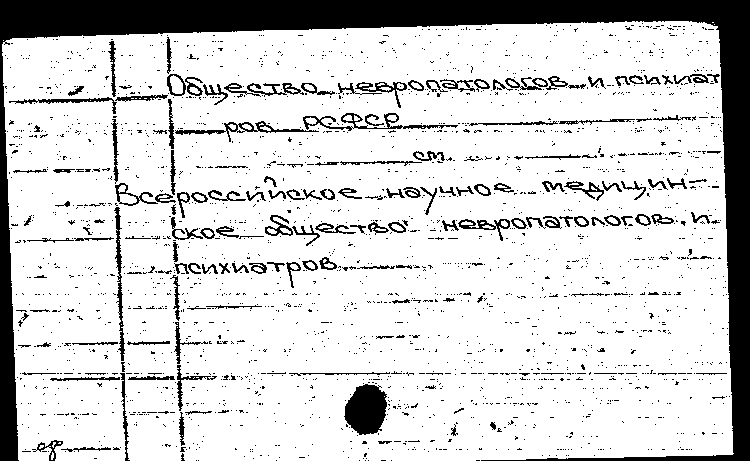 Общество невропатологов и психиат
ров РСФСР
см.
Всероссийское научное медицин-
ское общество невропатологов и
психиатров